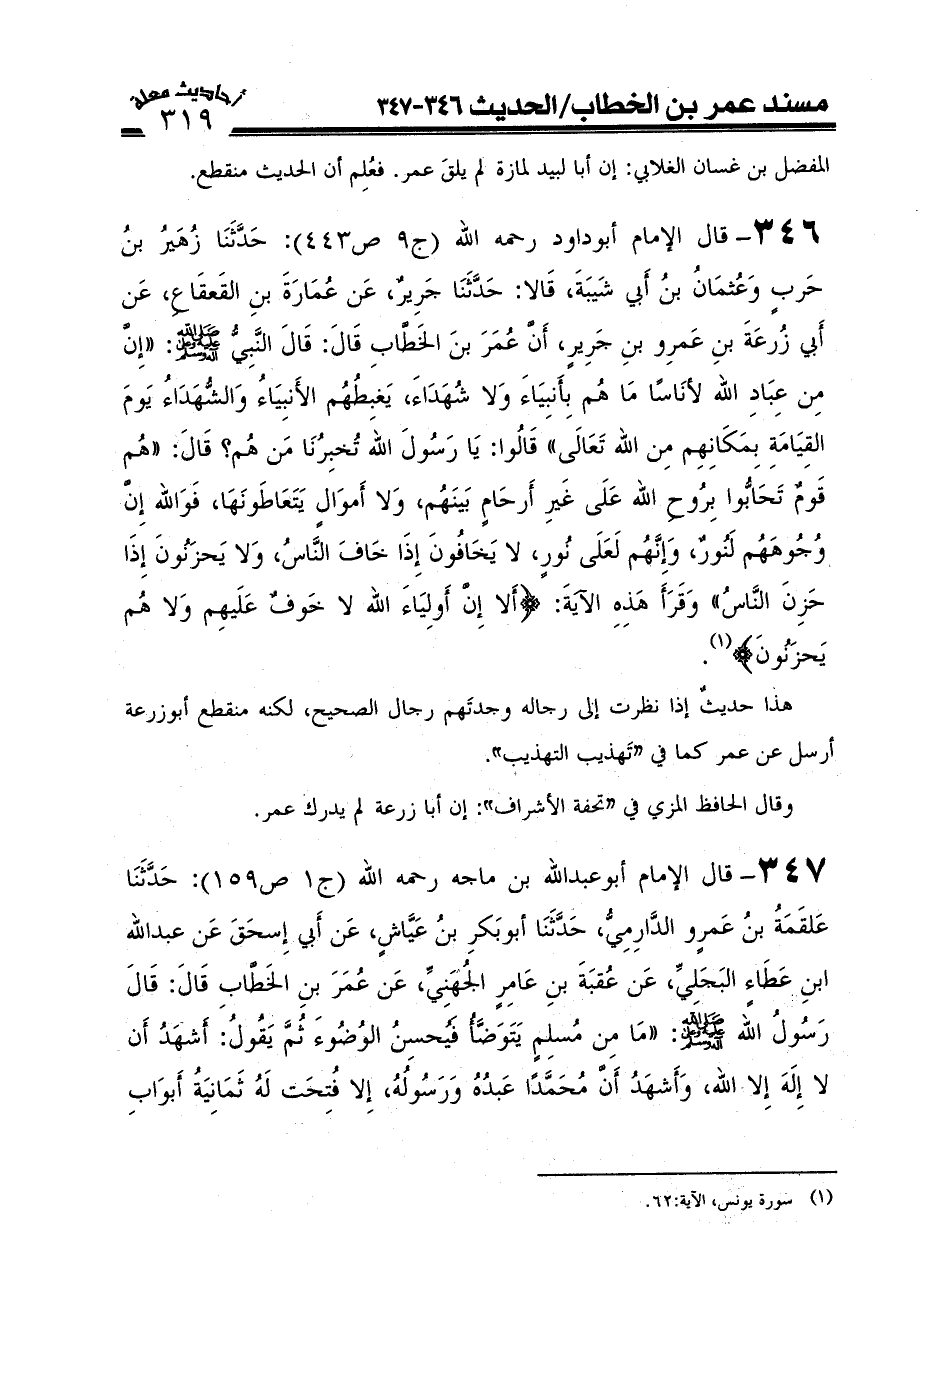 مسند عمر بن الخطاب/الحديث ٣٤٦-٣٤٧
أحاديث معلة
٣١٩
المفضل بن غسان الغلابي: إن أبا لبيد لمازة لم يلقَ عمر. فعُلِم أن الحديث منقطع.
٣٤٦- قال الإمام أبوداود رحمه الله (ج٩ ص٤٤٣): حَدَّثَنَا زُهَيرُ بنُ
حَربٍ وَعُثمَانُ بنُ أَبي شَيبَةَ، قَالا: حَدَّثَنَا جَرِيرٌ، عَن عُمَارَةَ بنِ القَعقَاعِ، عَن
أَبي زُرعَةَ بنِ عَمرِو بنِ جَرِيرٍ، أَنَّ عُمَرَ بنَ الخَطَّابِ قَالَ: قَالَ النَّبيُّ ﷺ: «إِنَّ
مِن عِبَادِ الله لأنَاسًا مَا هُم بِأَنبِيَاءَ وَلا شُهَدَاءَ، يَغبِطُهُم الأَنبِيَاءُ وَالشُّهَدَاءُ يَومَ
القِيَامَةِ بِمَكَانِهِم مِن الله تَعَالَى» قَالُوا: يَا رَسُولَ الله تُخبِرُنَا مَن هُم؟ قَالَ: «هُم
قَومٌ تَحَابُّوا بِرُوحِ الله عَلَى غَيرِ أَرحَامٍ بَينَهُم، وَلا أَموَالٍ يَتَعَاطَونَهَا، فَوَالله إِنَّ
وُجُوهَهُم لَنُورٌ، وَإِنَّهُم لَعَلَى نُورٍ، لا يَخَافُونَ إِذَا خَافَ النَّاسُ، وَلا يَحزَنُونَ إِذَا
حَزِنَ النَّاسُ» وَقَرَأَ هَذِهِ الآيَةَ: ﴿أَلا إِنَّ أَولِيَاءَ الله لا خَوفٌ عَلَيهِم وَلا هُم
يَحزَنُونَ﴾(١).
هذا حديثٌ إذا نظرت إلى رجاله وجدتَهم رجال الصحيح، لكنه منقطع أبوزرعة
أرسل عن عمر كما في «تَهذيب التهذيب».
وقال الحافظ المزي في «تحفة الأشراف»: إن أبا زرعة لم يدرك عمر.
٣٤٧- قال الإمام أبوعبدالله بن ماجه رحمه الله (ج١ ص١٥٩): حَدَّثَنَا
عَلقَمَةُ بنُ عَمرٍو الدَّارِمِيُّ، حَدَّثَنَا أبوبَكرِ بنُ عَيَّاشٍ، عَن أَبي إِسحَقَ عَن عبدالله
ابنِ عَطَاءٍ البَجَلِيِّ، عَن عُقبَةَ بنِ عَامِرٍ الجُهَنيِّ، عَن عُمَرَ بنِ الخَطَّابِ قَالَ: قَالَ
رَسُولُ الله ﷺ: «مَا مِن مُسلِمٍ يَتَوَضَّأُ فَيُحسِنُ الوُضُوءَ ثُمَّ يَقُولُ: أَشهَدُ أَن
لا إِلَهَ إِلا الله، وَأَشهَدُ أَنَّ مُحَمَّدًا عَبدُهُ وَرَسُولُهُ، إِلا فُتِحَت لَهُ ثَمَانِيَةُ أَبوَابِ
(١) سورة يونس، الآية:٦٢.